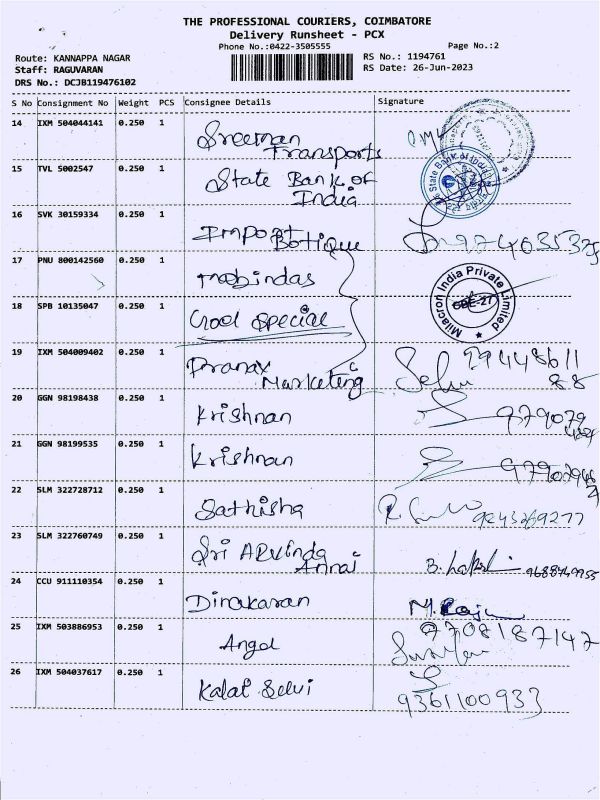 THE PROFESSIONAL COURIERS, COIMBATORE
Delivery Runsheet - PCX
Phone No.:0422-3505555
Page No.:2
Route: KANNAPPA NAGAR
RS No.: 1194761
Staff: RAGUVARAN
RS Date: 26-Jun-2023
DRS No.: DCJB119476102
S No Consignment No Weight PCS Consignee Details Signature
14 IXM 504044141 0.250 1 Sreeman Transports
15 TVL 5002547 0.250 1 State Bank of India
16 SVK 30159334 0.250 1 Import Botique
17 PNU 800142560 0.250 1 mobindas
Milacron India Private Limited
18 SPB 10135047 0.250 1 Special
19 IXM 504009402 0.250 1 Pranav Marketing
20 GGN 98198438 0.250 1 Krishnan
21 GGN 98199535 0.250 1 Krishnan
22 SLM 322728712 0.250 1 Sathisha 9243269277
23 SLM 322760749 0.250 1 Sri ARvinda Annai
24 CCU 911110354 0.250 1 Dinakaran M.Raju
25 IXM 503886953 0.250 1 Angal 9708187147
26 IXM 504037617 0.250 1 Kalai Selvi 9361100933